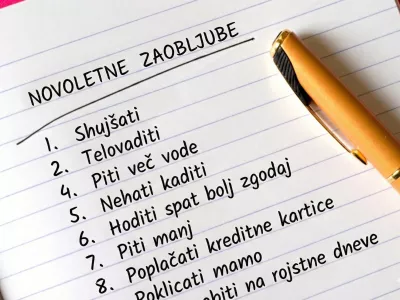 NOVOLETNE ZAOBLJUBE
1. Shujšati
2. Telovaditi
4. Piti več vode
5. Nehati kaditi
6. Hoditi spat bolj zgodaj
7. Piti manj
8. Poplačati kreditne kartice
Poklicati mamo
na rojstne dneve